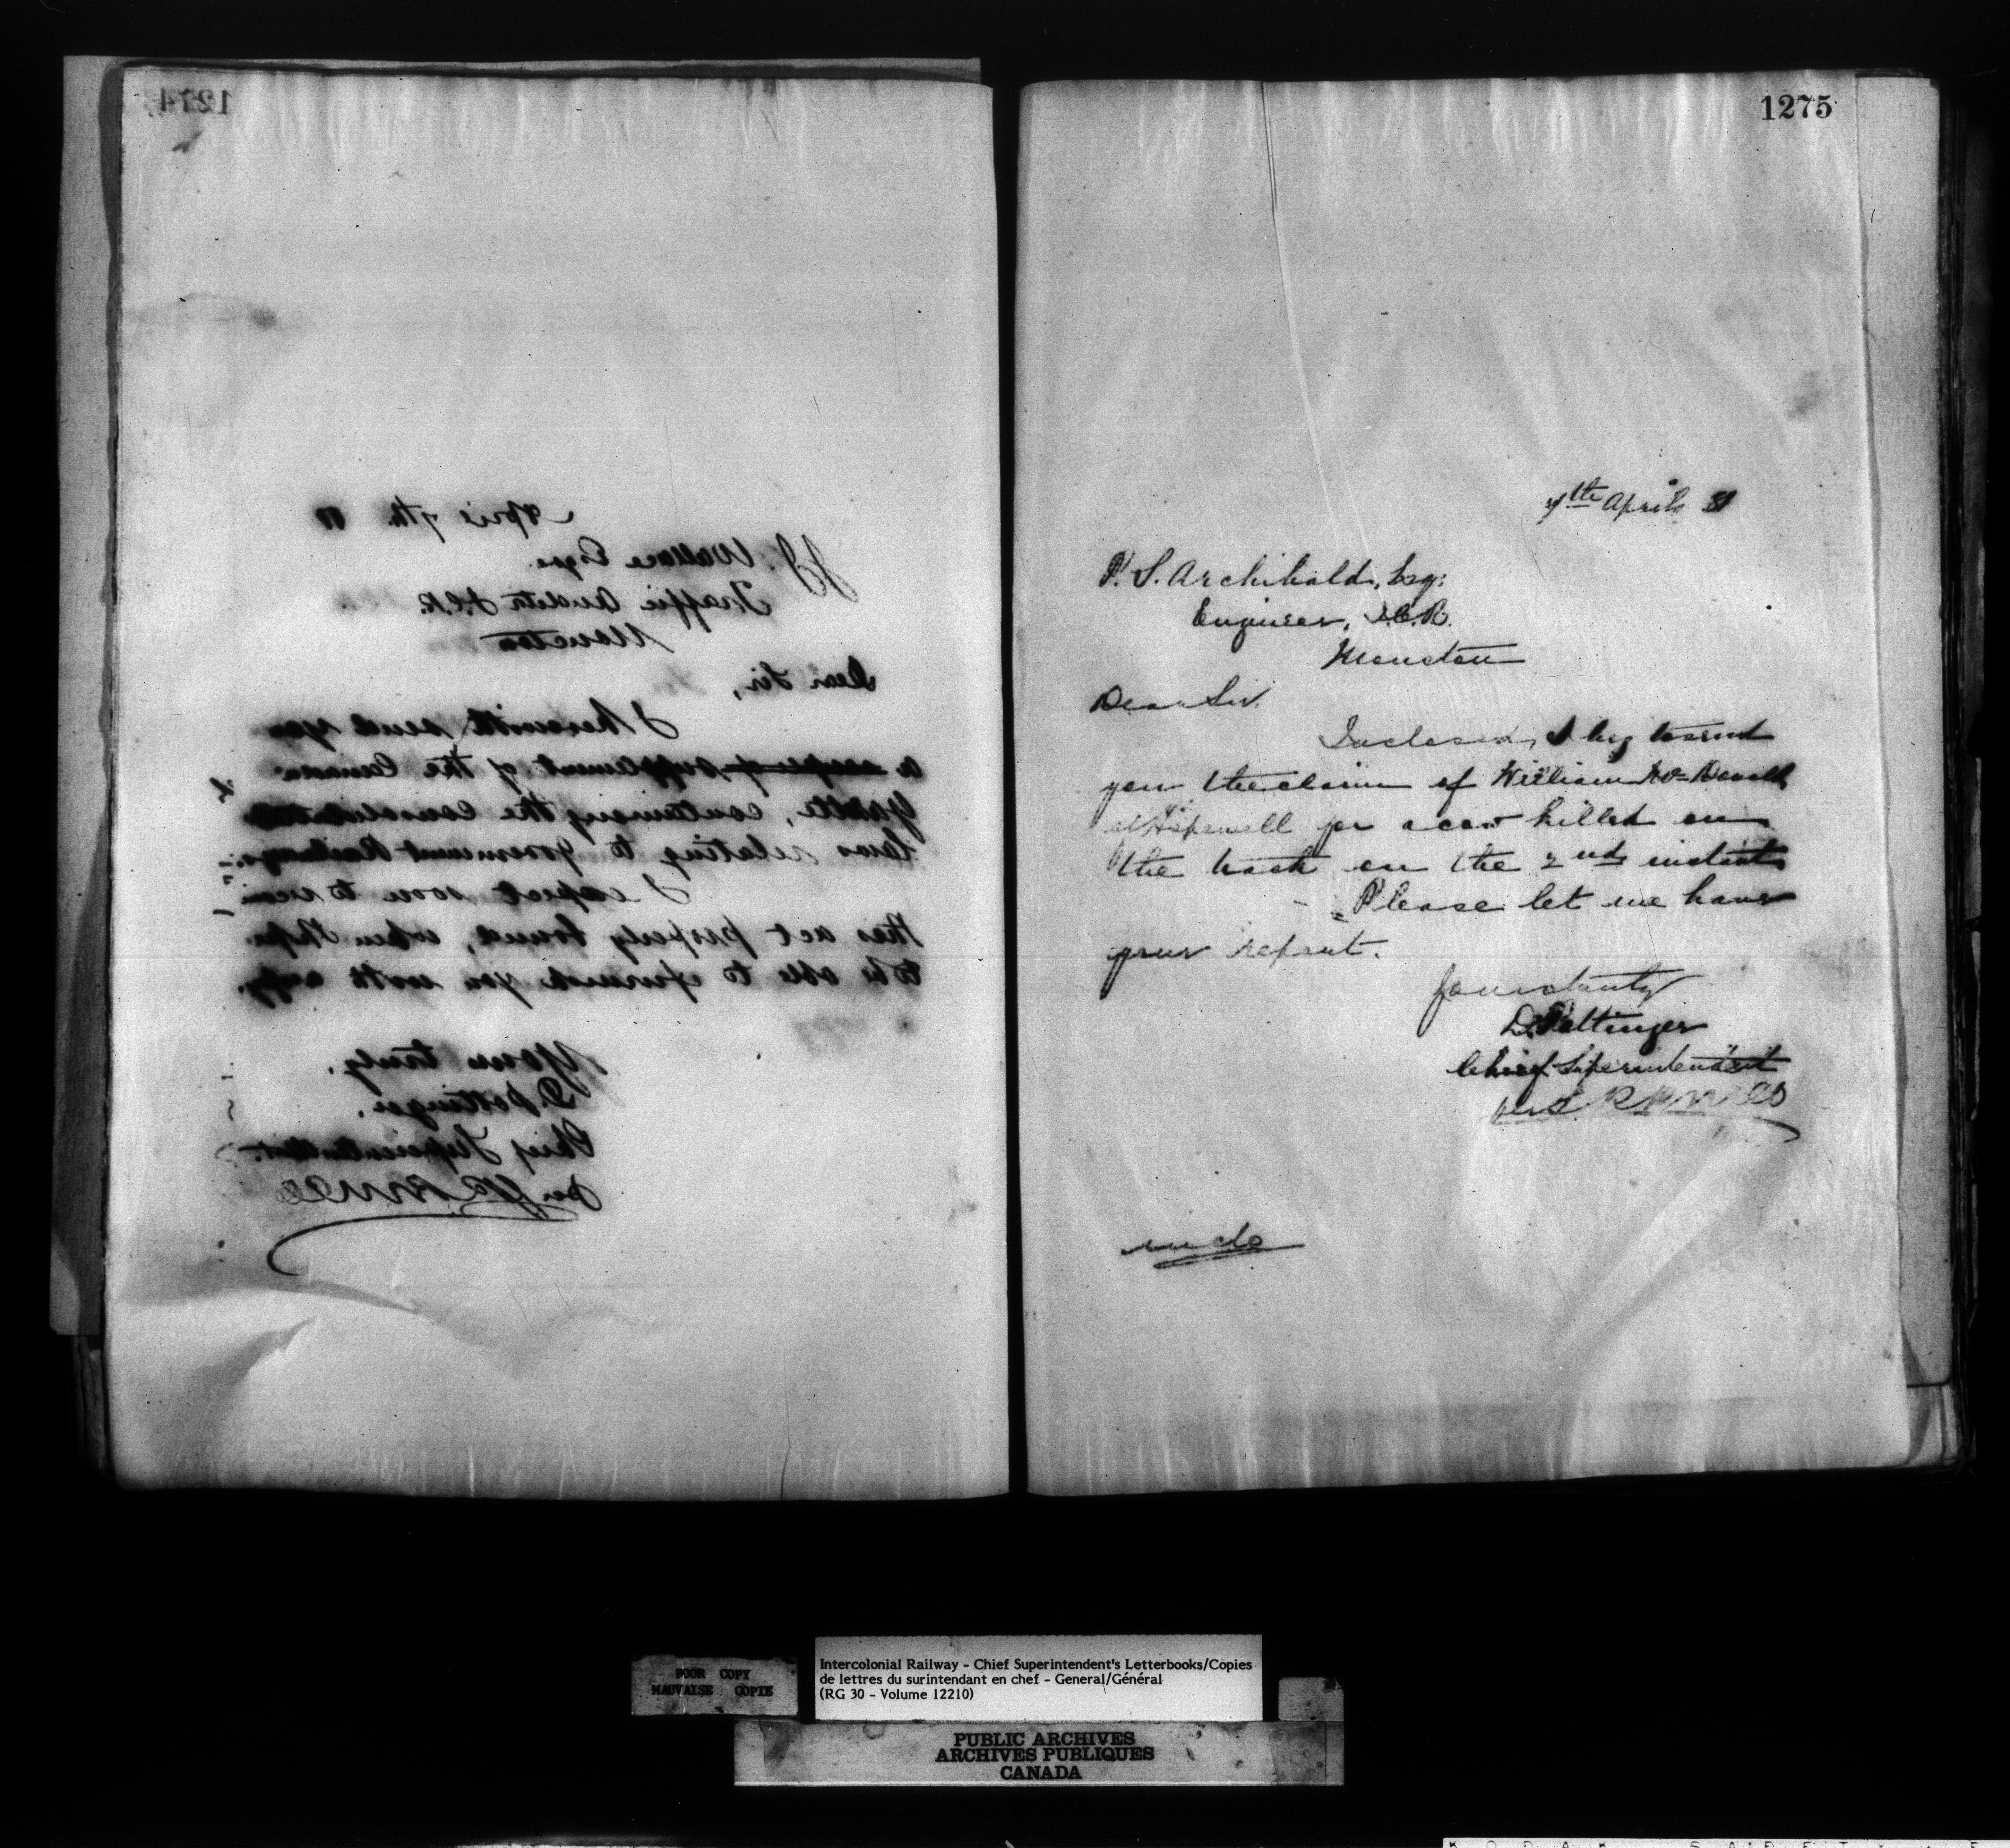 1274
April 7th 81
J.J. Wallace Esqre
Traffic Auditor I.C.R.
Moncton
Dear Sir,
I herewith send you
a copy of supplement of the Canada
Gazette, containing the consolidated
laws relating to Government Railways.
I expect soon to receive
this act properly bound, when I hope
to be able to furnish you with copy.
Yours truly,
D. Pottinger,
Chief Superintendent.
per
1275
7th April 81
P. S. Archibald, Esq:
Engineer, I.C.R.
Moncton
Dear Sir.
Inclosed, I beg to send
you the claim of William McDonald
of Hopewell for a cow killed on
the track on the 2nd instant
Please let me have
your report.
Yours truly
D. Pottinger
Chief Superintendent
per
inclo
POOR COPY
MAUVAISE COPIE
Intercolonial Railway - Chief Superintendent's Letterbooks/Copies
de lettres du surintendant en chef - General/Général
(RG 30 - Volume 12210)
PUBLIC ARCHIVES
ARCHIVES PUBLIQUES
CANADA